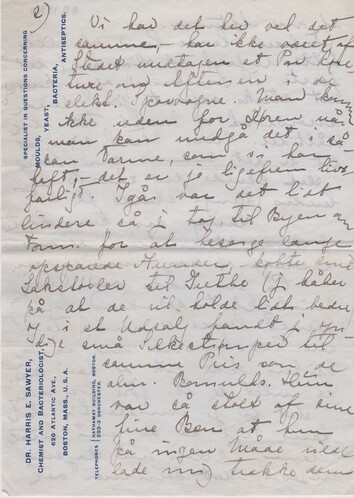 2)
Vi har det her vel det
samme, har ikke været af
Stedet undtagen et Par Køre
ture om Aftenen i de
elekt. Sporvogne. Man kan
ikke uden for Døren når
man kan undgå det i så
can Varme, som vi har
haft, – det er jo ligefrem livs
farligt. Igår var det lidt
lindere så j tog til Byen om
Form. for at besørge lange
opsparede Ærinder, købte små
til Grethe (j håber
på at de vil holde lidt bedre
) i et Udsalg fandt j yn
dige små Silkestrømper til
samme Pris som de
alm. Bomulds. Hun
var så stolt af sine
fine Ben at hun
på ingen Måde vilde
lade mig trække dem
SPECIALIST IN QUESTIONS CONCERNING
MOULDS, YEAST, BACTERIA, ANTISEPTICS.
DR. HARRIS E. SAWYER,
CHEMIST AND BACTERIOLOGIST,
620 ATLANTIC AVE.,
BOSTON, MASS., U. S. A.
TELEPHONES
HATHAWAY BUILDING, BOSTON.
DORCHESTER.